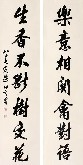 樂意相關禽對語
生香不斷樹交花